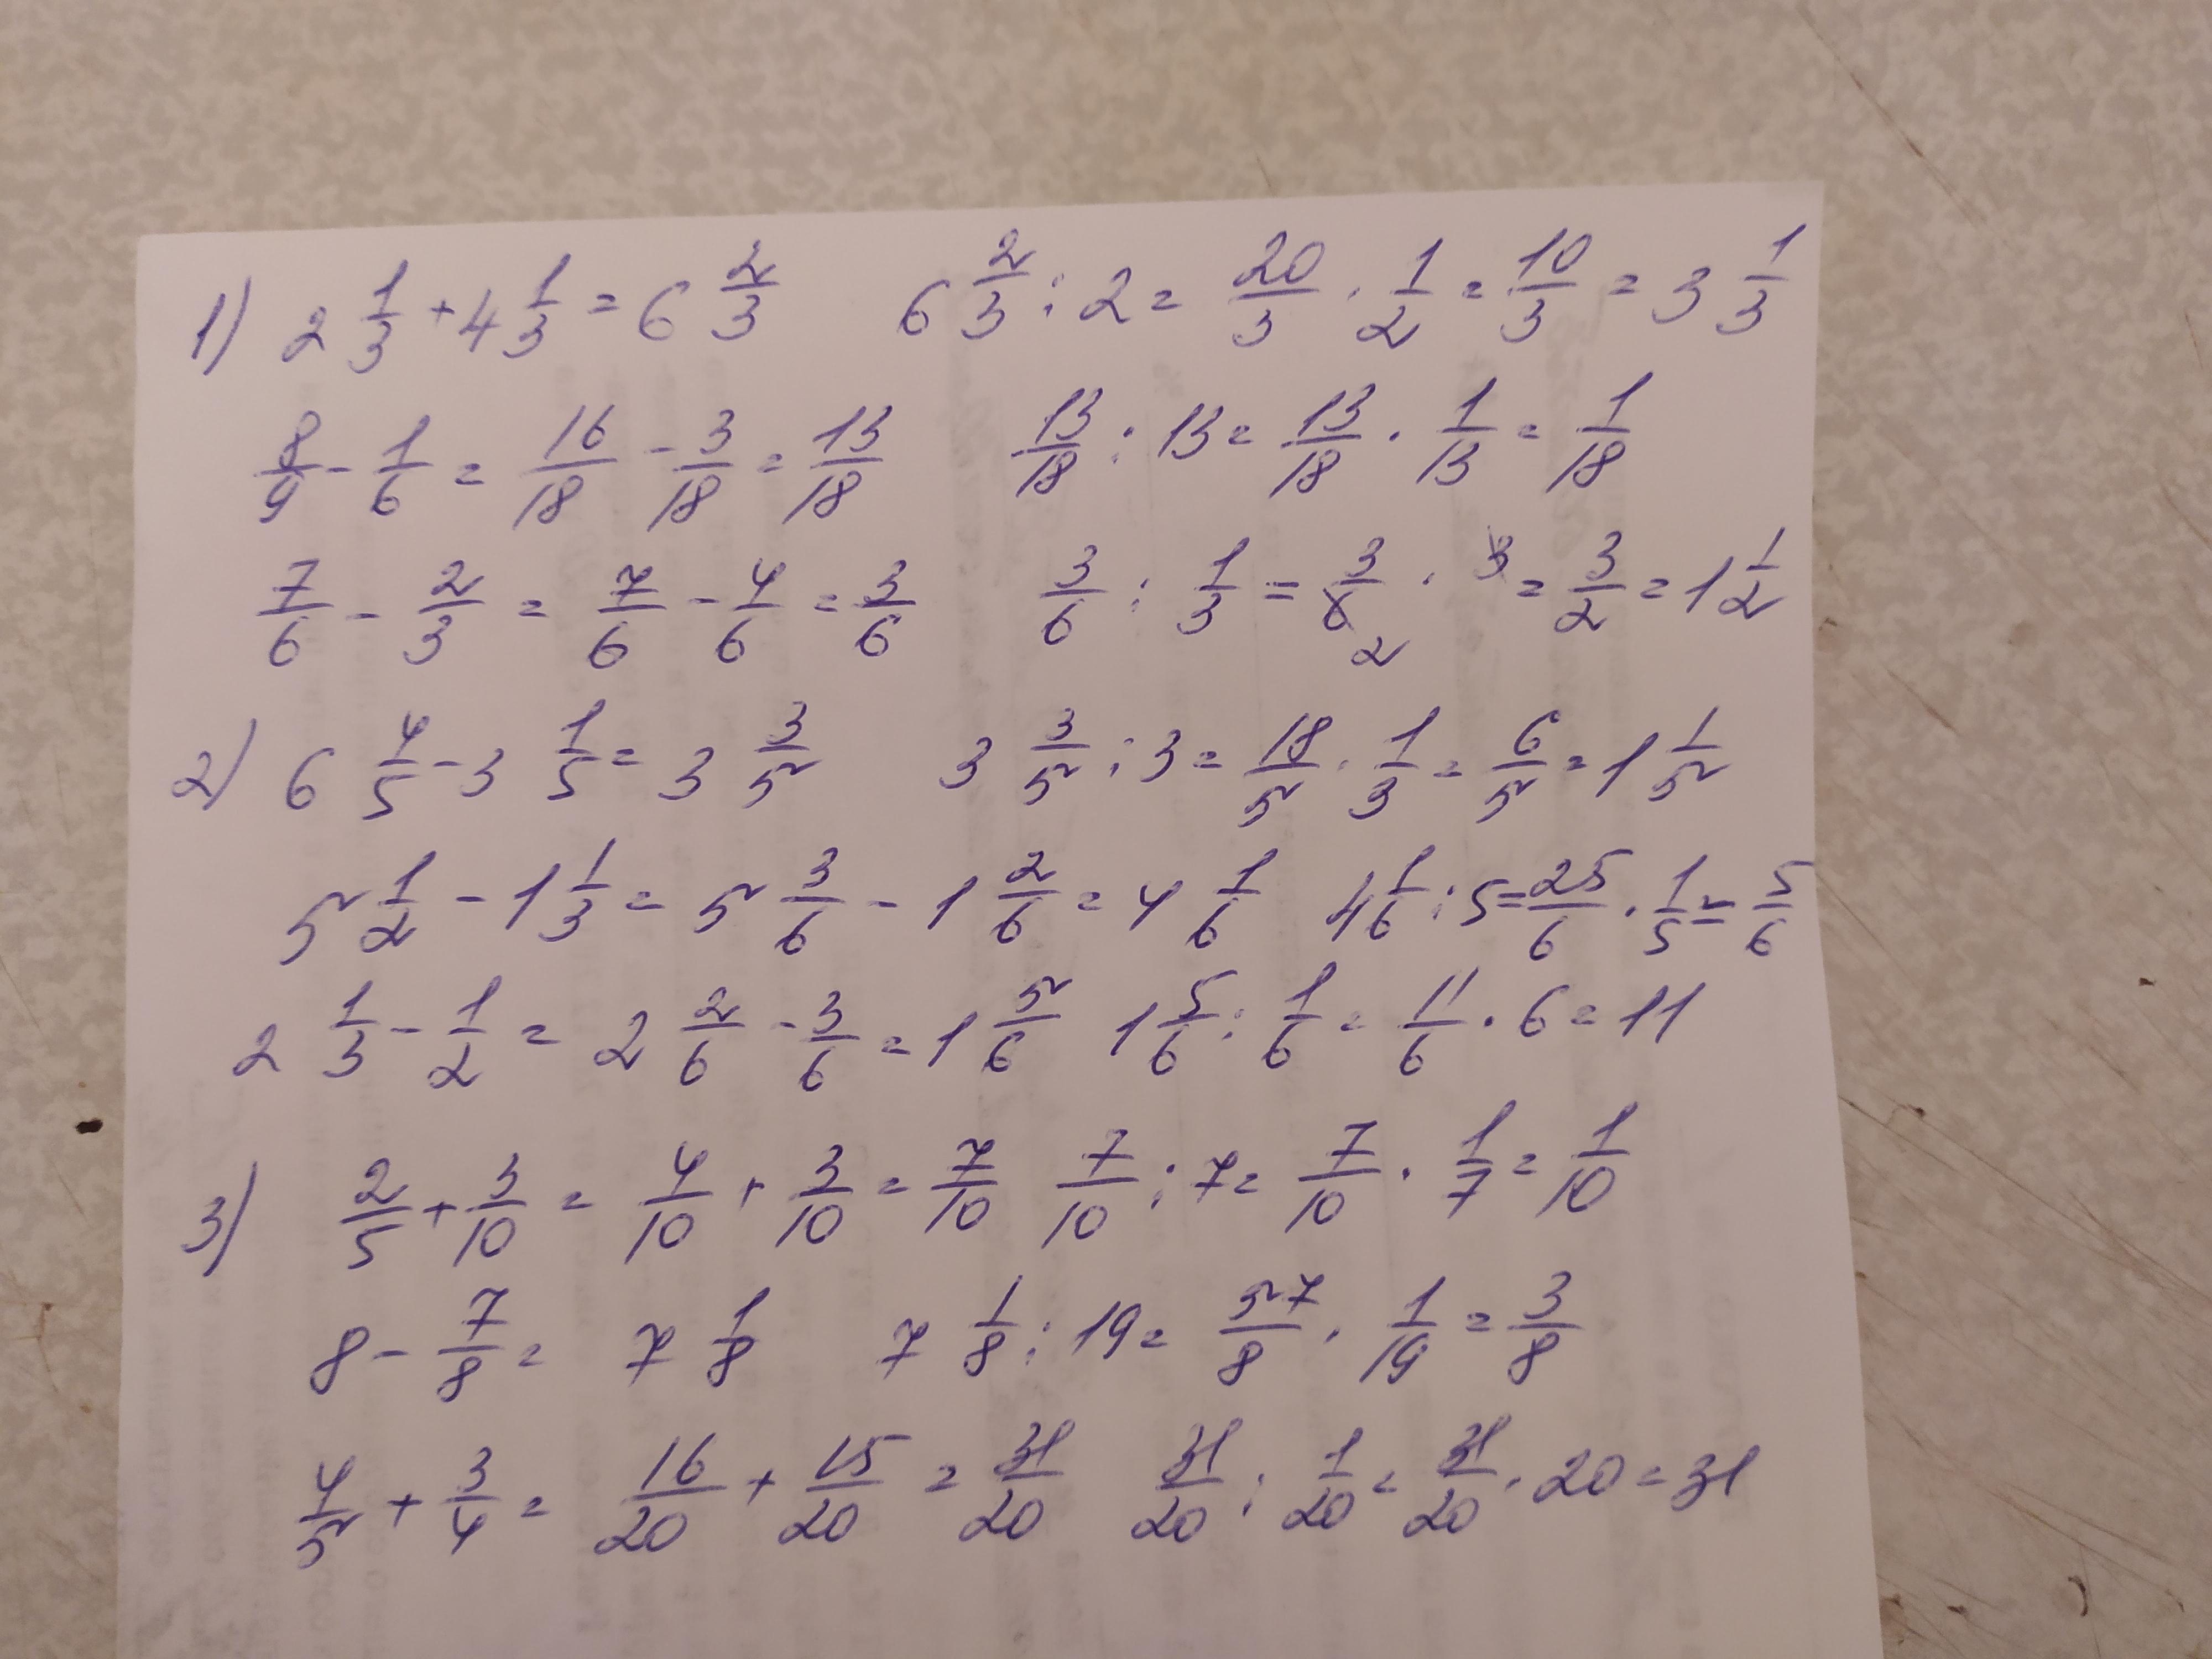 1) 2 1/3 + 4 1/3 = 6 2/3 6 2/3 : 2 = 20/3 · 1/2 = 10/3 = 3 1/3
8/9 - 1/6 = 16/18 - 3/18 = 13/18 13/18 : 13 = 13/18 · 1/13 = 1/18
7/6 - 2/3 = 7/6 - 4/6 = 3/6 3/6 : 1/3 = 3/6 · 3 = 3/2 = 1 1/2
2
2) 6 4/5 - 3 1/5 = 3 3/5 3 3/5 : 3 = 18/5 · 1/3 = 6/5 = 1 1/5
5 1/2 - 1 1/3 = 5 3/6 - 1 2/6 = 4 1/6 4 1/6 : 5 = 25/6 · 1/5 = 5/6
2 1/3 - 1/2 = 2 2/6 - 3/6 = 1 5/6 1 5/6 : 1/6 = 11/6 · 6 = 11
3) 2/5 + 3/10 = 4/10 + 3/10 = 7/10 7/10 : 7 = 7/10 · 1/7 = 1/10
8 - 7/8 = 7 1/8 7 1/8 : 19 = 57/8 · 1/19 = 3/8
4/5 + 3/4 = 16/20 + 15/20 = 31/20 31/20 : 1/20 = 31/20 · 20 = 31